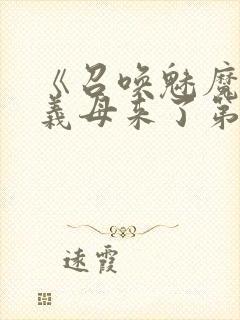 《召唤魅魔
义母来了第
远霞